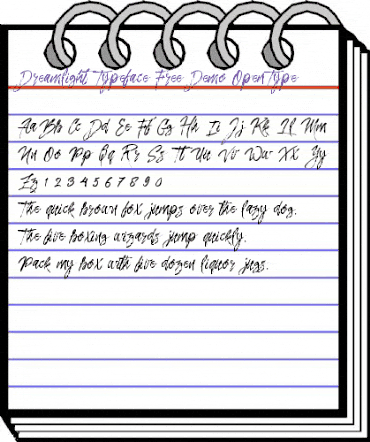 Dreamlight Typeface Free Demo OpenType
Aa Bb Cc Dd Ee Ff Gg Hh Ii Jj Kk Ll Mm
Nn Oo Pp Qq Rr Ss Tt Uu Vv Ww Xx Yy
Zz 1 2 3 4 5 6 7 8 9 0
The quick brown fox jumps over the lazy dog.
The five boxing wizards jump quickly.
Pack my box with five dozen liquor jugs.